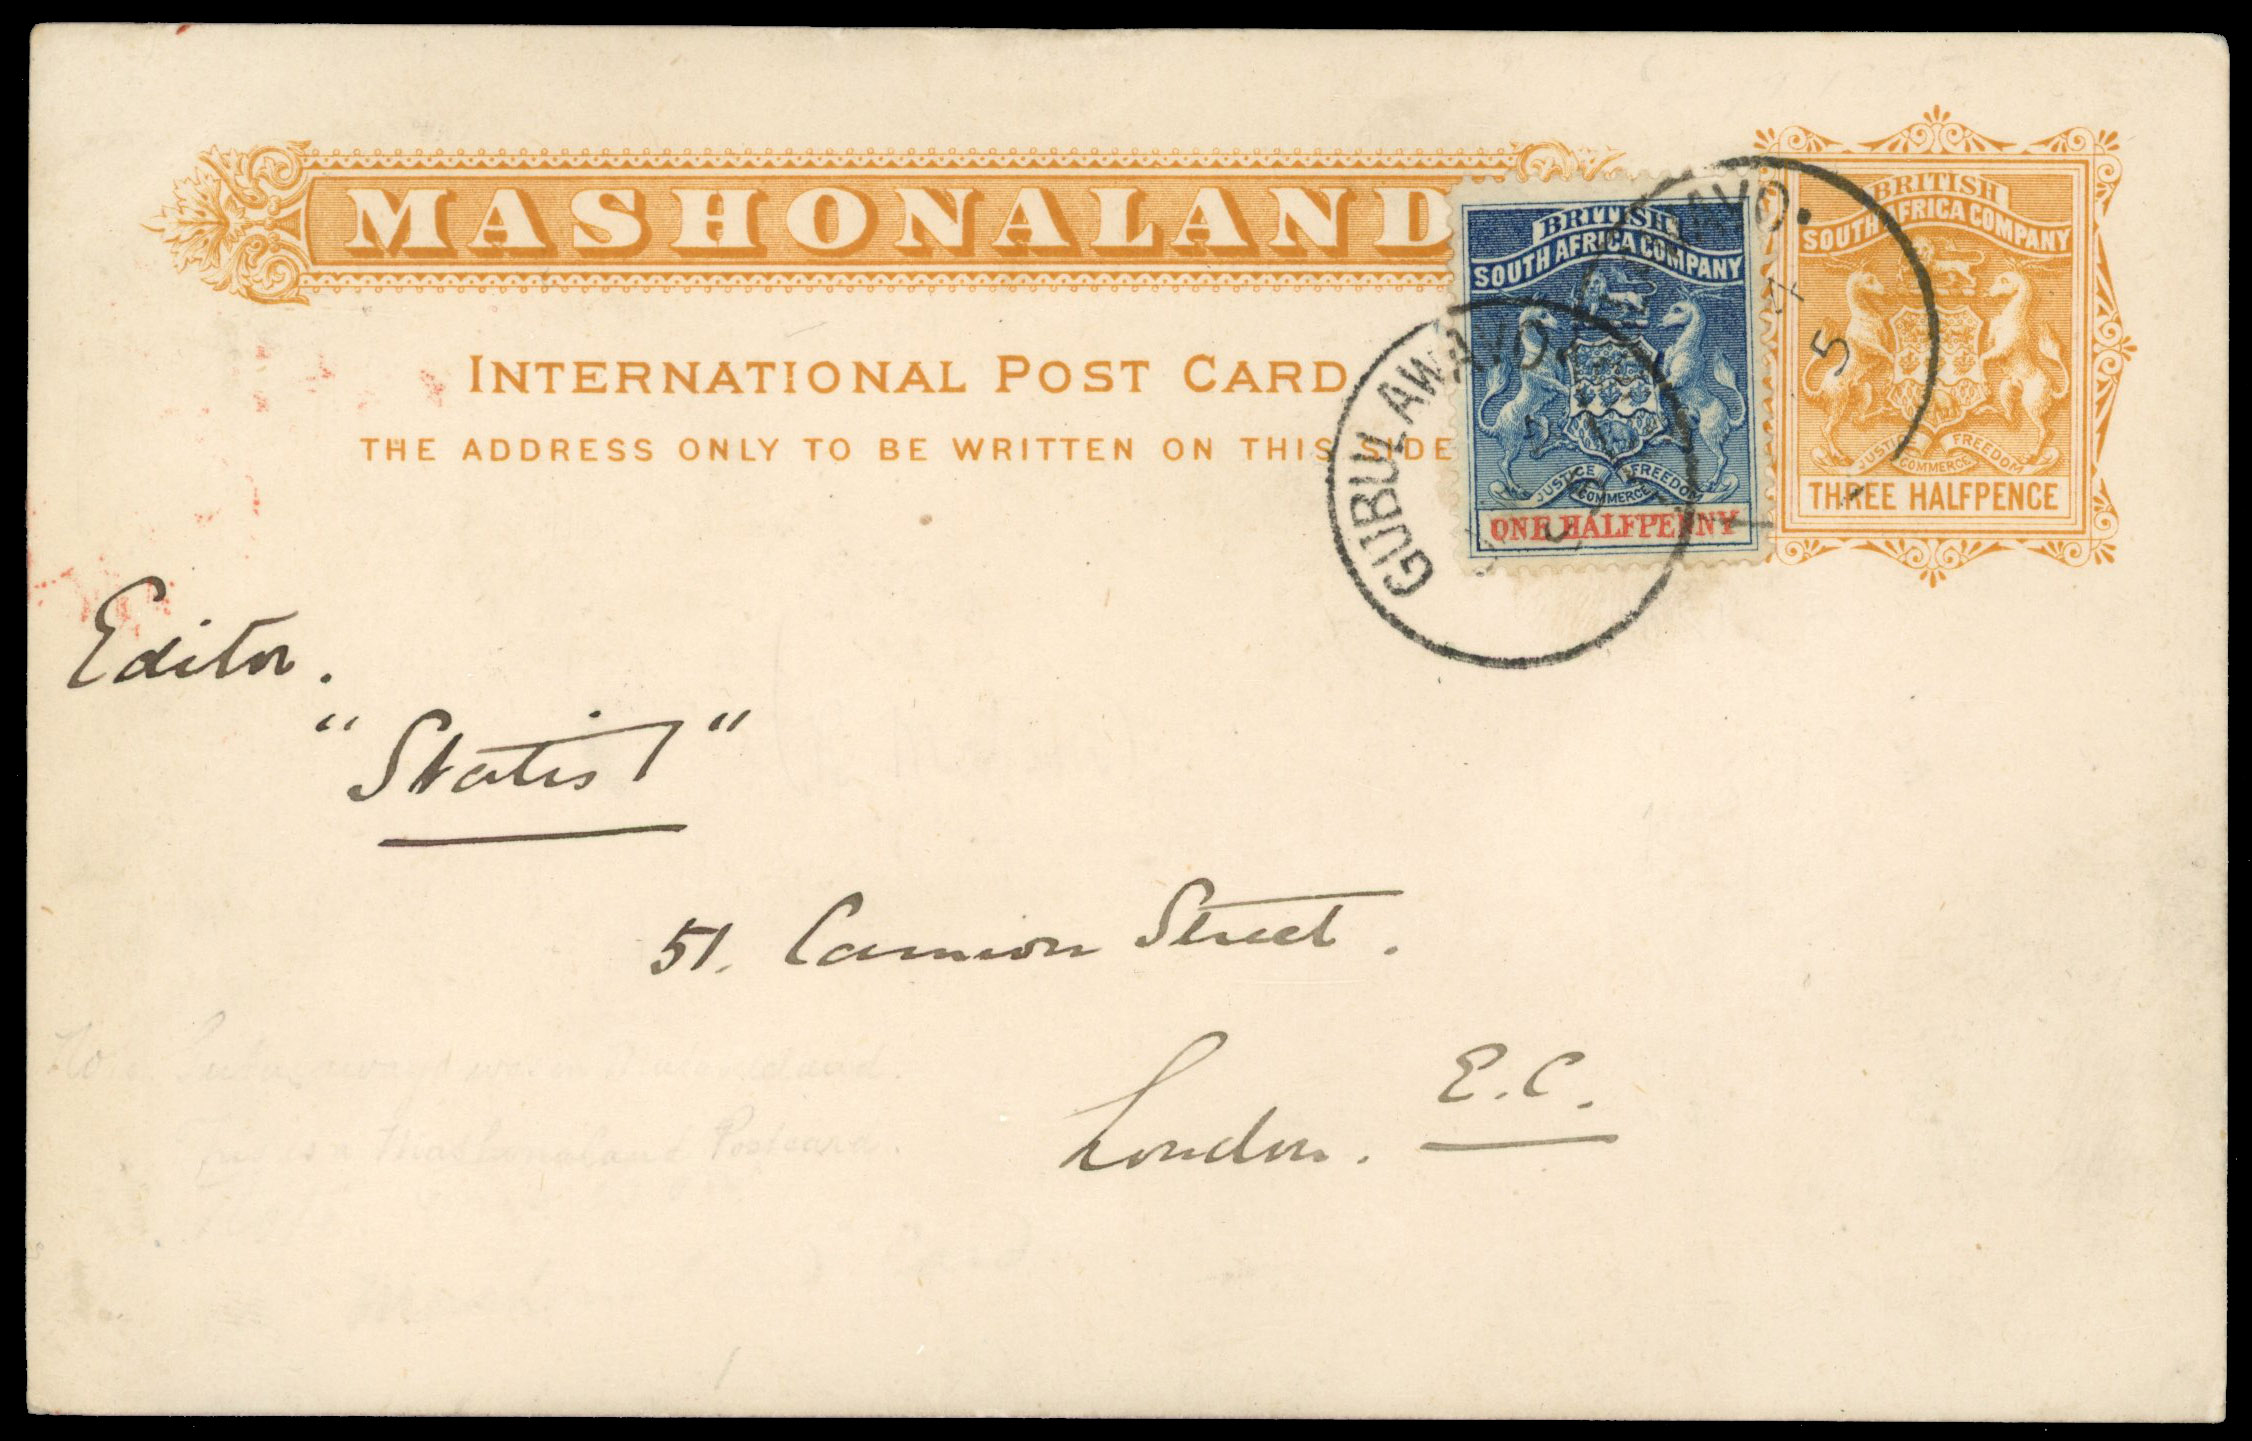 MASHONALAND
INTERNATIONAL POST CARD
THE ADDRESS ONLY TO BE WRITTEN ON THIS SIDE
BRITISH
SOUTH AFRICA COMPANY
JUSTICE
COMMERCE
FREEDOM
ONE HALFPENNY
BRITISH
SOUTH AFRICA COMPANY
JUSTICE
COMMERCE
FREEDOM
THREE HALFPENCE
GUBULAWAYO
Editor.
"Statist"
51. Cannon Street.
London. E.C.
This is a Mashonaland Postcard.